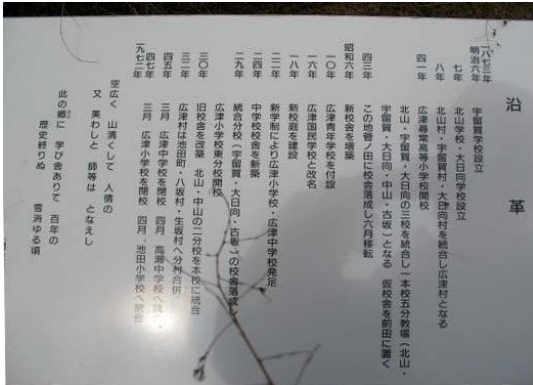 沿革
一八七三年
明治六年 宇留賀学校設立
七年 北山学校・大日向学校設立
八年 北山村・宇留賀村・大日向村を統合し広津村となる
広津尋常高等小学校開校
四一年 北山・宇留賀・大日向の三校を統合し一本校五分教場(北山・
宇留賀・大日向・中山・古坂)となる 仮校舎を前田に置く
四三年 この地菅ノ田に校舎落成し六月移転
昭和六年 新校舎を増築
一〇年 広津青年学校を付設
一六年 広津国民学校と改名
一八年 新校庭を建設
二二年 新学制により広津小学校・広津中学校発足
二四年 中学校校舎を新築
二九年 統合分校(宇留賀・大日向・古坂)の校舎落成し
広津小学校東分校開校
三〇年 旧校舎を改築 北山・中山の二分校を本校に統合
三二年 広津村は池田町・八坂村・生坂村へ分村合併
四五年 三月 広津中学校を閉校 四月 高瀬中学校へ統合
四七年
一九七二年 三月 広津小学校を閉校 四月 池田小学校へ統合
空広く 山清くして 人情の
又 美わしと 師等は となえし
此の郷に 学び舎ありて 百年の
歴史終りぬ 雪消ゆる頃